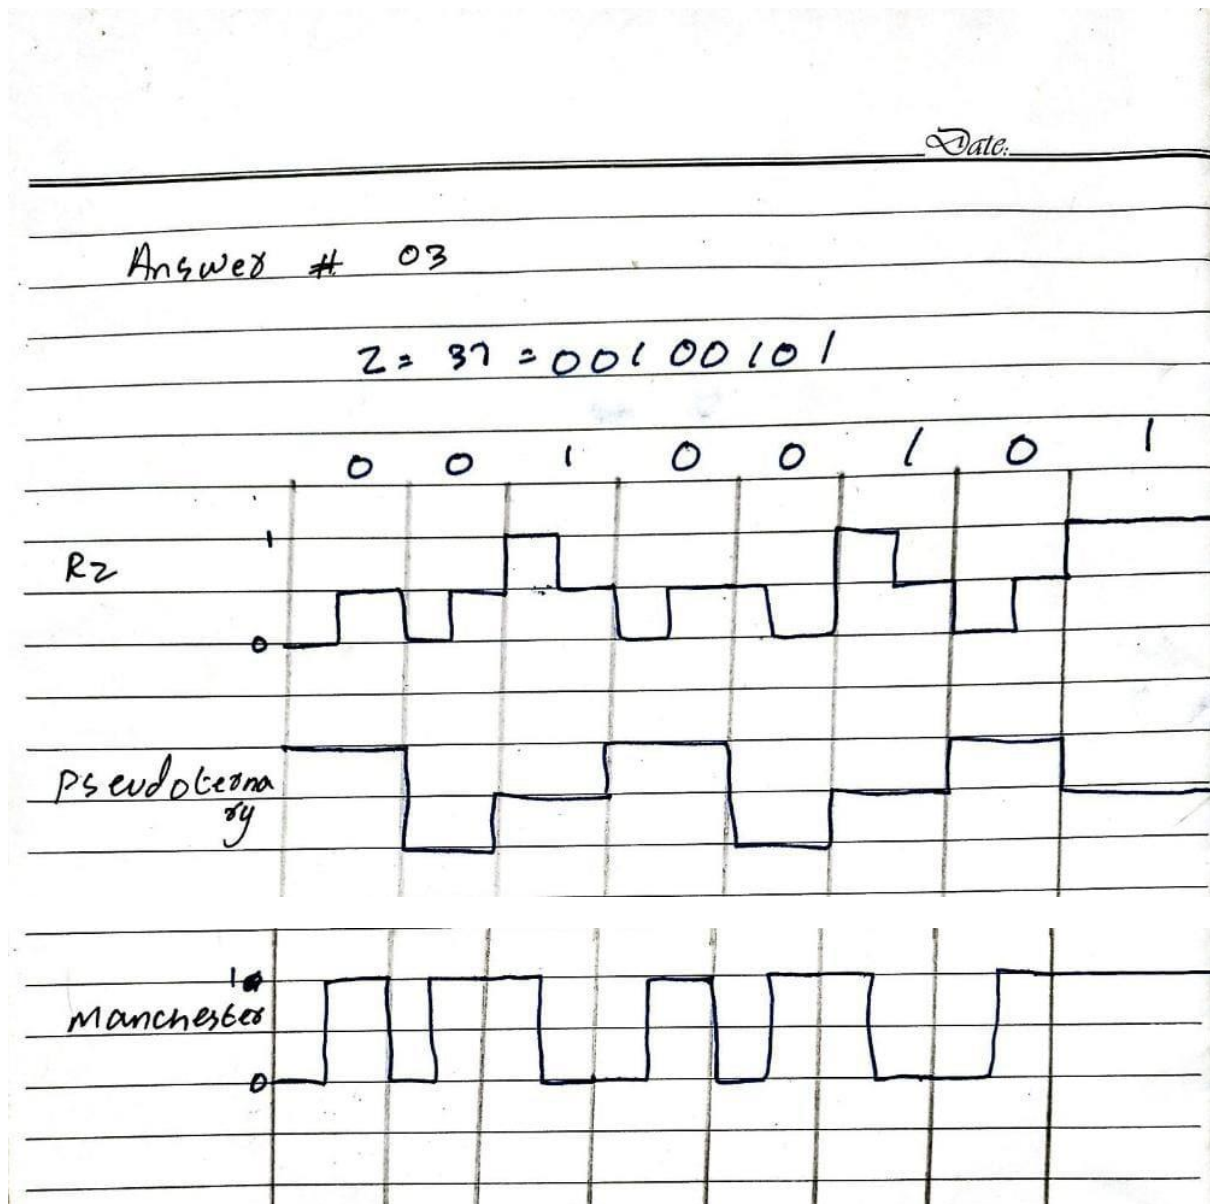 Date:
Answer # 03
Z = 37 = 00100101
0 0 1 0 0 1 0 1
1
RZ
0
Pseudoterna
ry
1
Manchester
0